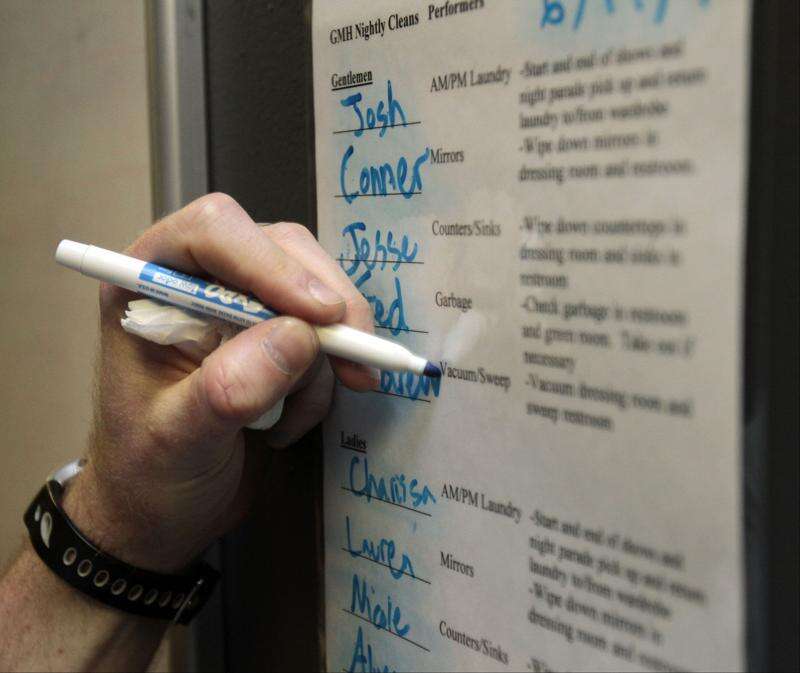 GMH Nightly Cleans Performers
Gentlemen
Josh AM/PM Laundry -Start and end of shows and
night parade pick up and return
laundry to/from wardrobe
Conner Mirrors -Wipe down mirrors in
dressing room and restroom.
Jesse Counters/Sinks -Wipe down countertops in
dressing room and sinks in
restroom
Garbage -Check garbage in restroom
and green room. Take out if
necessary
Vacuum/Sweep -Vacuum dressing room and
sweep restroom
Ladies
Charisa AM/PM Laundry -Start and end of shows and
night parade pick up and return
laundry to/from wardrobe
Lauren Mirrors -Wipe down mirrors in
dressing room and restroom
Nicole Counters/Sinks
EXPO